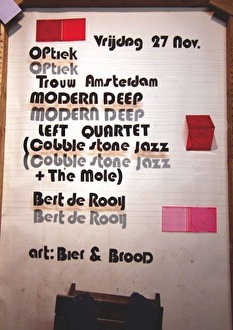 Vrijdag 27 Nov.
OPtiek
OPtiek
Trouw Amsterdam
MODERN DEEP
MODERN DEEP
LEFT QUARTET
(Cobble stone jazz
(Cobble stone jazz
+ The Mole)
Bert de Rooij
Bert de Rooij
art: Bier & BrooD